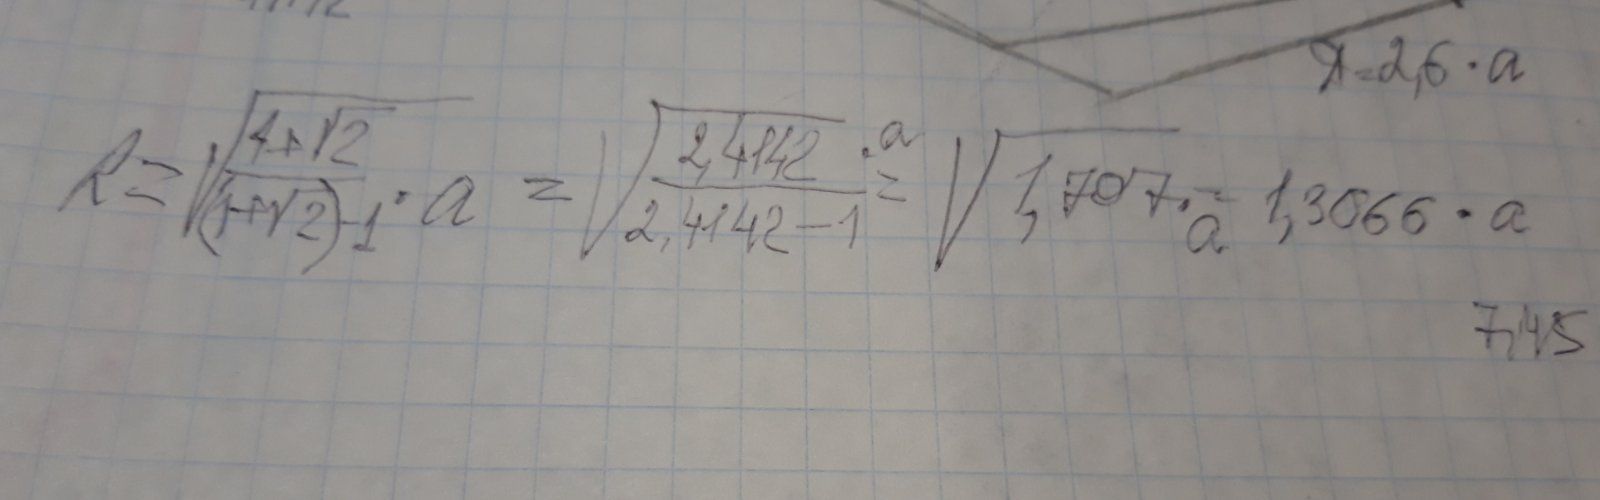 Д=2,6·a
R=√((1+√2)/((1+√2)-1))·a = √(2,4142/(2,4142-1))·a = √1,707·a = 1,3066·a
7,45